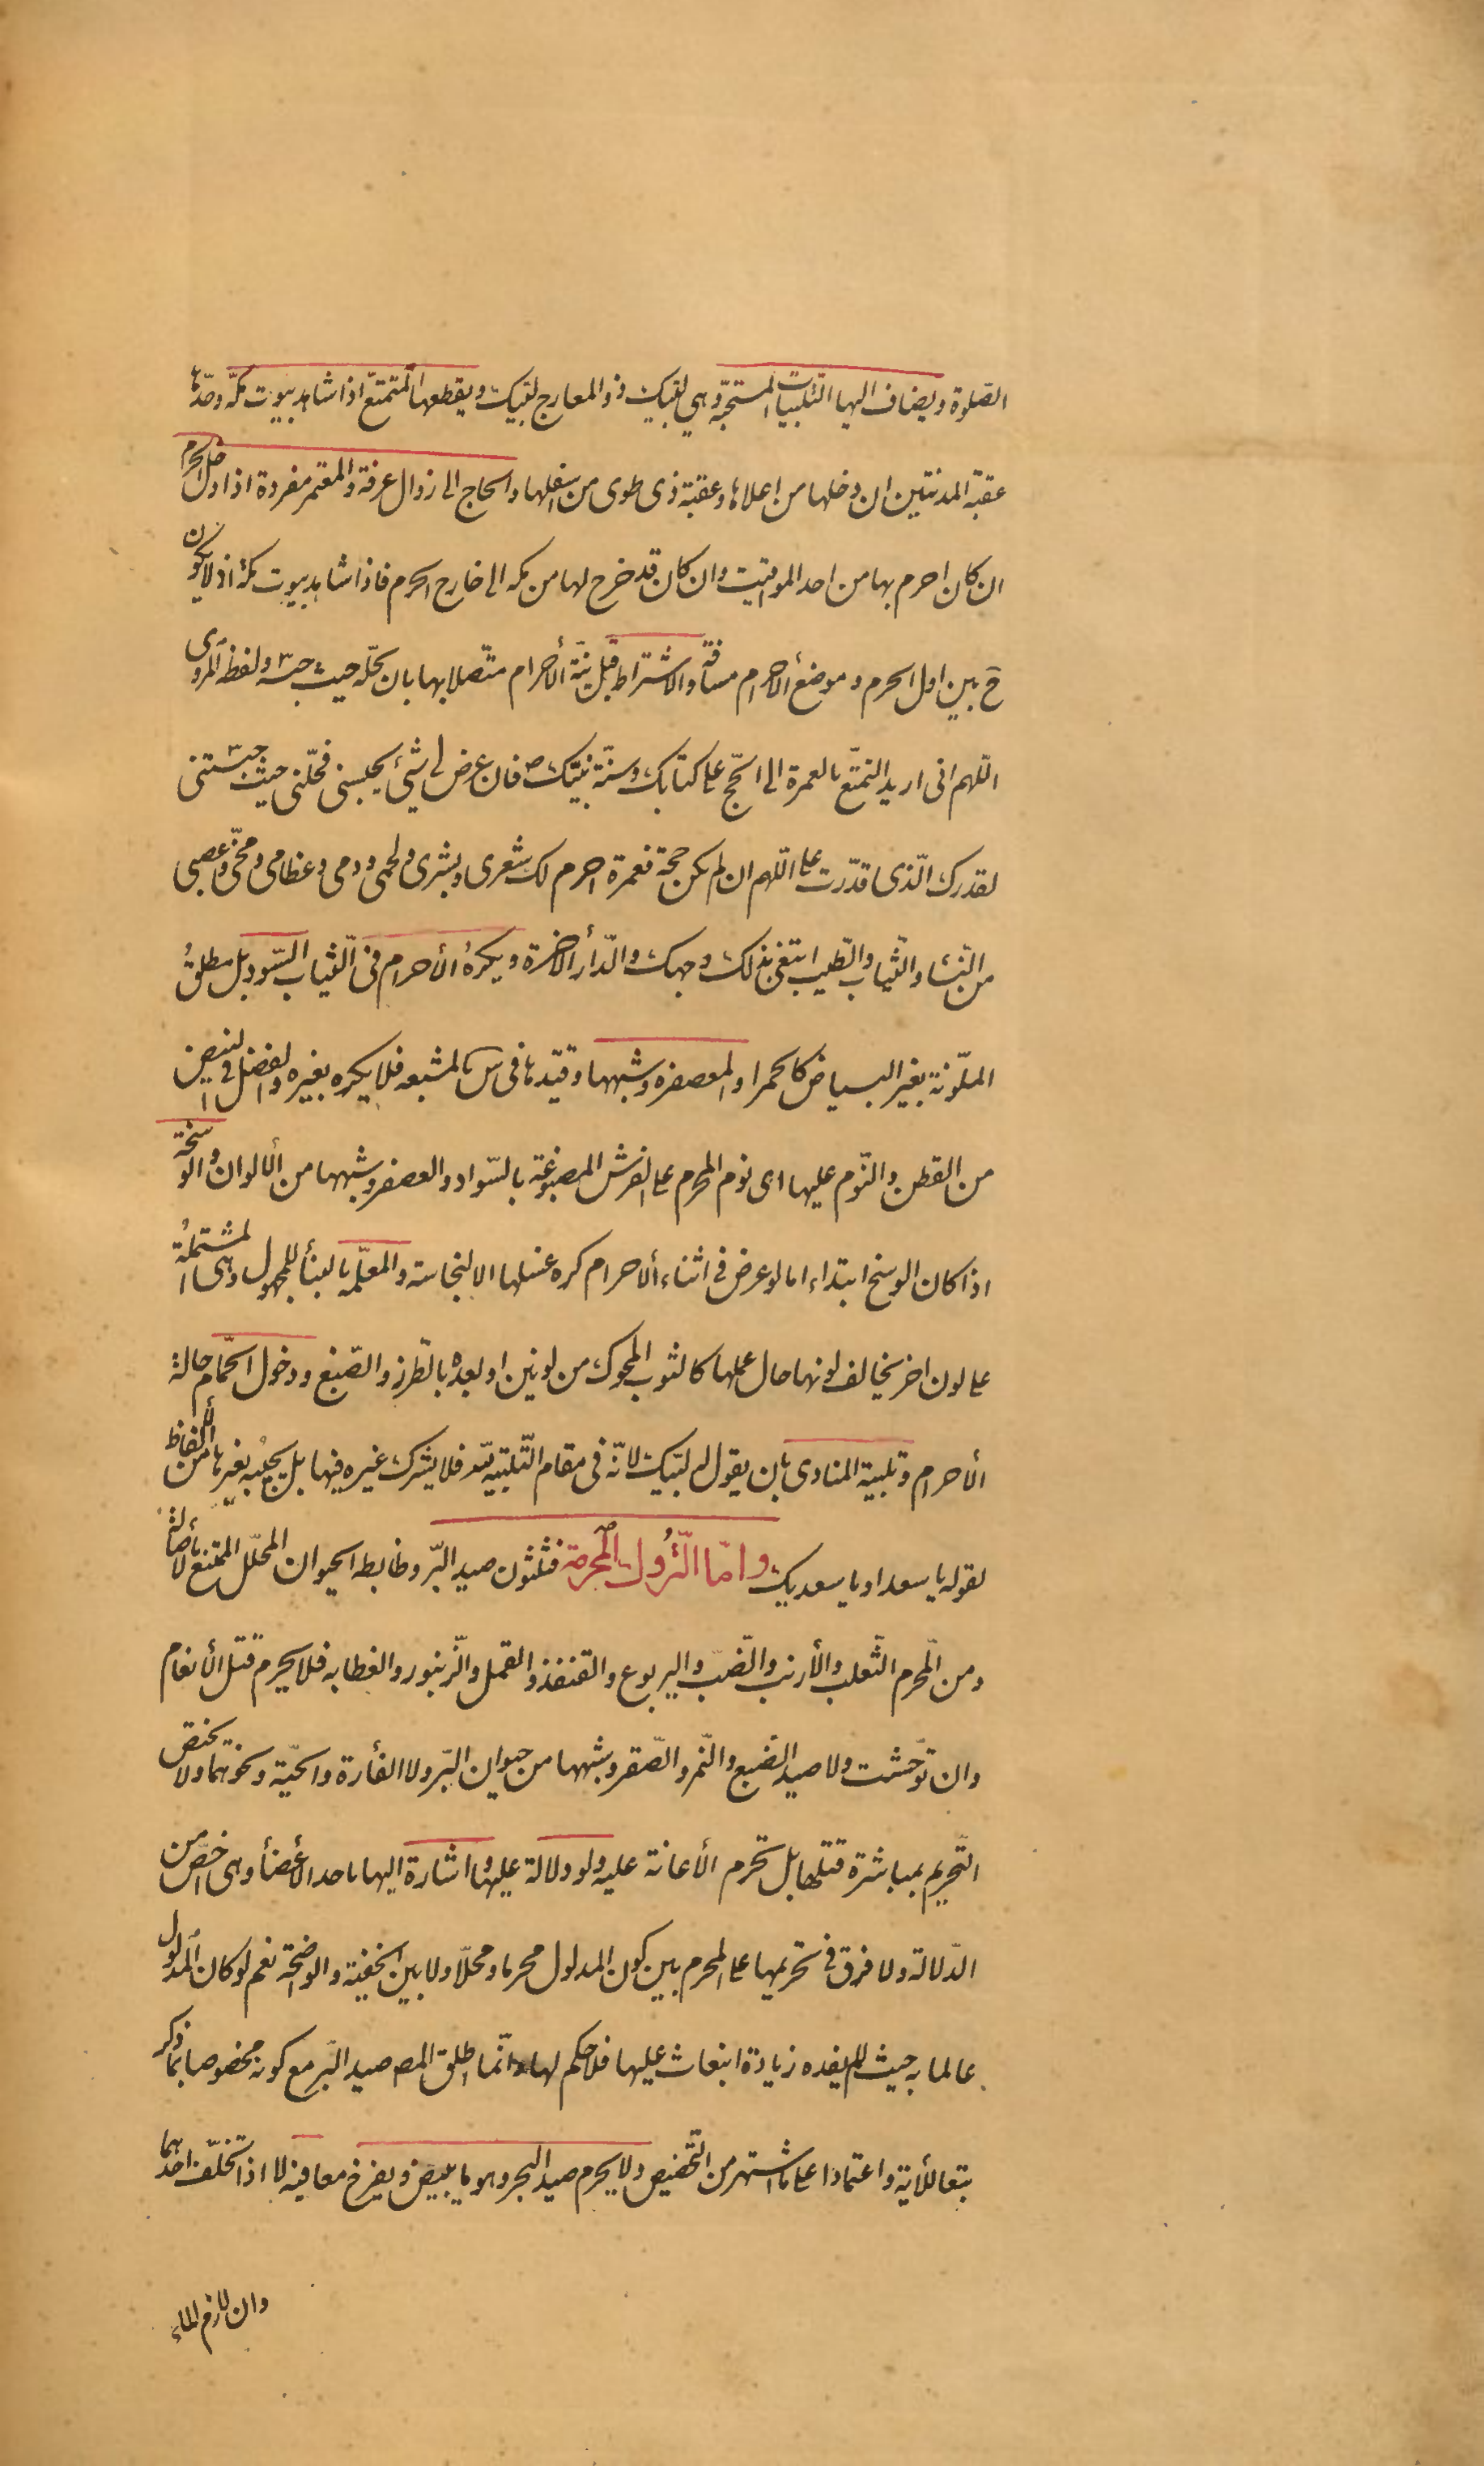 الصّلوة ويضاف اليها التّلبيات المستحبّة وهي لبّيك ذو المعارج لبّيك ويقطعها المتمتّع اذا شاهد بيوت مكّة وحدّها
عقبة المدنيّين ان دخلها من اعلاها وعقبة ذى طوى من اسفلها والحاج الى زوال عرفة والمعتمر مفردة اذا دخل الحرم
ان كان احرم بها من احد المواقيت وان كان قد خرج لها من مكه الى خارج الحرم فاذا شاهد بيوت مكة اذ لا يكون
ح بين اول الحرم و موضع الأحرام مسافة والاشتراط قبل نيّة الأحرام متّصلا بها بان يحلّه حيث حبسه ولفظ المروى
اللهم انى اريد التمتّع بالعمرة الى الحجّ على كتابك وسنّة نبيّك ص فان عرض لى شئ يحبسنى فحلّنى حيث حبستنى
لقدرك الّذى قدّرت على اللّهم ان لم يكن حجة فعمرة احرم لك شعرى وبشرى ولحمى ودمى وعظامى ومخّى وعصبى
من النساء والثياب والطيب ابتغى بذلك وجهك والدّار الاخرة ويكره الأحرام فى الثّياب السّود بل مطلق
الملوّنة بغير البياض كالحمراء والمعصفره وشبهها وقيّدها فى س بالمشبعه فلا يكره بغيره والفضل فى البيض
من القطن والنّوم عليها اى نوم المحرم على الفرش المصبوغة بالسّواد والعصفر وشبهها من الألوان والوسخة
اذا كان الوسخ ابتداء اما لو عرض فى اثناء الأحرام كره غسلها الا لنجاسة والمعلمه بالبناء للمجهول وهى المشتملة
على لون اخر يخالف لونها حال عملها كالثوب المحوك من لونين او بعده بالطّرز والصّبغ ودخول الحّمام حالة
الأحرام وتلبية المنادى بان يقول له لبّيك لانّه فى مقام التّلبية لله فلا يشرك غيره فيها بل يجيبه بغيرها من الألفاظ
لقوله يا سعد او يا سعديك وامّا التّروك المحرمة فثلثون صيد البّر وضابطه الحيوان المحلّل الممتنع بالأصالة
ومن المحرم الثّعلب والأرنب والضّبّ واليربوع والقنفذ والقمل والزّنبور والعظايه فلا يحرم قتل الأنعام
وان توّحشت ولا صيد الضّبع والنّمر والصّقر وشبهها من حيوان البّر ولا الفأرة والحيّة ونحوهما ولا يختص
التّحريم بمباشرة قتلها بل تحرم الأعانة عليه ولو دلالة عليها واشارة اليها باحد الأعضاء وهى اخصّ من
الدّلالة ولا فرق فى تحريمها على المحرم بين كون المدلول محرما ومحلّا ولا بين الخفية والواضحة نعم لو كان المدلول
عالما به حيث لم يفده زيادة انبعاث عليها فلا حكم لها وانّما اطلق المص صيد البّر مع كونه مخصوصا بما ذكر
تبعا للأية واعتمادا على ما اشتهر من التخصيص ولا يحرم صيد البحر وهو ما يبيض ويفرخ معا فيه لا اذا تخلّف احدهما
وان لازم الماء